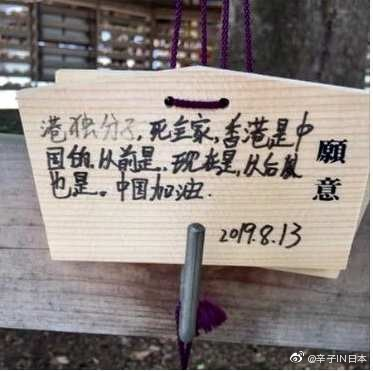 港独分子，死全家，香港是中
国的，从前是，现在是，从后
也是。中国加油.
願意
2019.8.13
@辛子IN日本